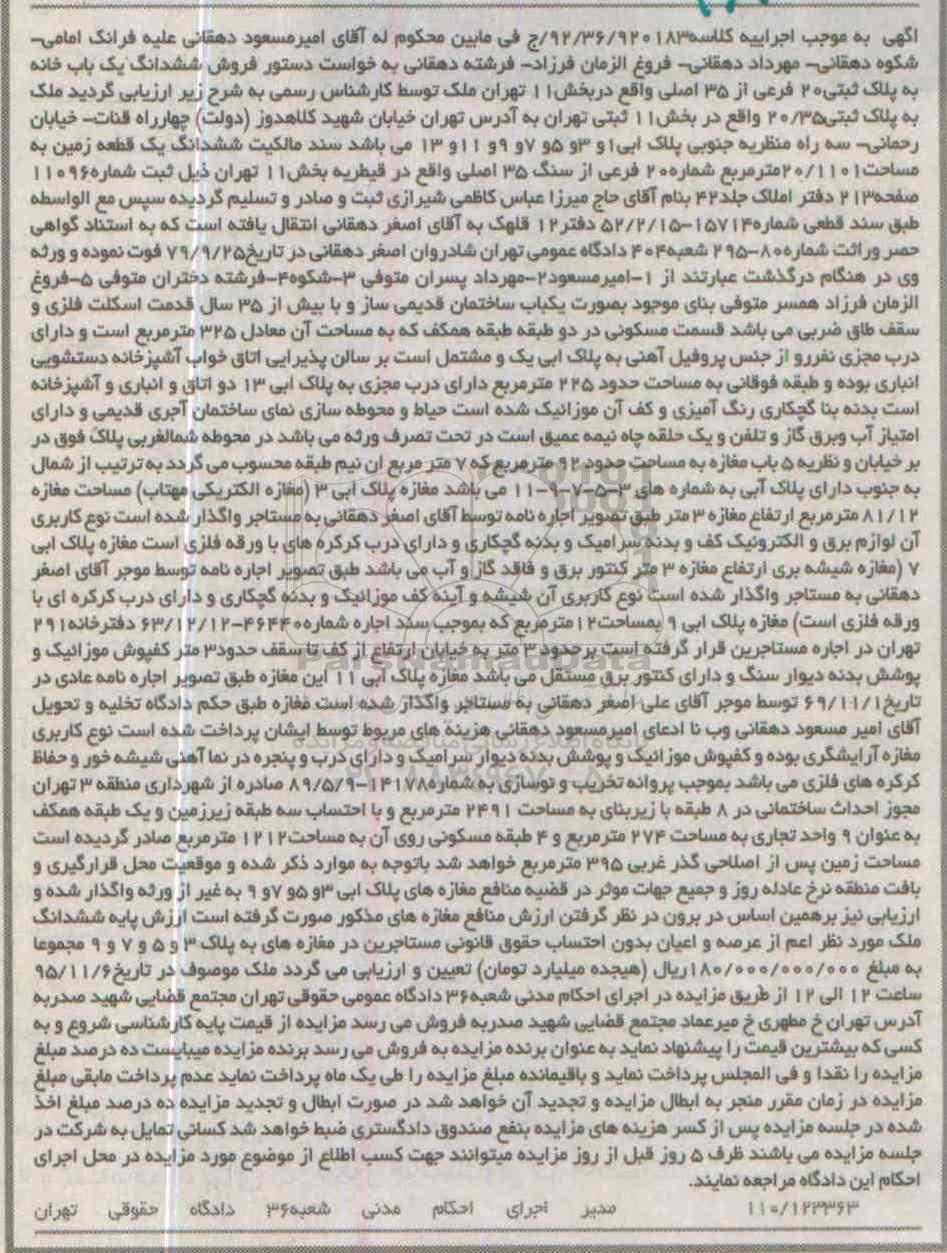 آگهی به موجب اجراییه کلاسه۹۲/۳۶/۹۲۰۱۸۳/ج فی مابین محکوم له آقای امیرمسعود دهقانی علیه فرانک امامی-
شکوه دهقانی- مهرداد دهقانی- فروغ الزمان فرزاد- فرشته دهقانی به خواست دستور فروش ششدانگ یک باب خانه
به پلاک ثبتی۲۰ فرعی از ۳۵ اصلی واقع دربخش۱۱ تهران ملک توسط کارشناس رسمی به شرح زیر ارزیابی گردید ملک
به پلاک ثبتی۲۰/۳۵ واقع در بخش۱۱ ثبتی تهران به آدرس تهران خیابان شهید کلاهدوز (دولت) چهارراه قنات- خیابان
رحمانی- سه راه منظریه جنوبی پلاک ابی۱و ۳و ۵و ۷و ۹و ۱۱و ۱۳ می باشد سند مالکیت ششدانگ یک قطعه زمین به
مساحت۲۰/۱۱۰۱مترمربع شماره۲۰ فرعی از سنگ ۳۵ اصلی واقع در قیطریه بخش۱۱ تهران ذیل ثبت شماره۱۱۰۹۶
صفحه۲۱۳ دفتر املاک جلد۴۲ بنام آقای حاج میرزا عباس کاظمی شیرازی ثبت و صادر و تسلیم گردیده سپس مع الواسطه
طبق سند قطعی شماره۱۵۷۱۴-۵۲/۲/۱۵ دفتر۱۲ قلهک به آقای اصغر دهقانی انتقال یافته است که به استناد گواهی
حصر وراثت شماره۸۰-۲۹۵ شعبه۴۰۴ دادگاه عمومی تهران شادروان اصغر دهقانی در تاریخ۷۹/۹/۲۵ فوت نموده و ورثه
وی در هنگام درگذشت عبارتند از ۱-امیرمسعود۲-مهرداد پسران متوفی ۳-شکوه۴-فرشته دختران متوفی ۵-فروغ
الزمان فرزاد همسر متوفی بنای موجود بصورت یکباب ساختمان قدیمی ساز و با بیش از ۳۵ سال قدمت اسکلت فلزی و
سقف طاق ضربی می باشد قسمت مسکونی در دو طبقه طبقه همکف که به مساحت آن معادل ۳۲۵ مترمربع است و دارای
درب مجزی نفررو از جنس پروفیل آهنی به پلاک ابی یک و مشتمل است بر سالن پذیرایی اتاق خواب آشپزخانه دستشویی
انباری بوده و طبقه فوقانی به مساحت حدود ۲۲۵ مترمربع دارای درب مجزی به پلاک ابی ۱۳ دو اتاق و انباری و آشپزخانه
است بدنه بنا گچکاری رنگ آمیزی و کف آن موزائیک شده است حیاط و محوطه سازی نمای ساختمان آجری قدیمی و دارای
امتیاز آب وبرق گاز و تلفن و یک حلقه چاه نیمه عمیق است در تحت تصرف ورثه می باشد در محوطه شمالغربی پلاک فوق در
بر خیابان و نظریه ۵ باب مغازه به مساحت حدود ۹۲ مترمربع که ۷ متر مربع ان نیم طبقه محسوب می گردد به ترتیب از شمال
به جنوب دارای پلاک آبی به شماره های ۳-۵-۷-۹-۱۱ می باشد مغازه پلاک ابی ۳ (مغازه الکتریکی مهتاب) مساحت مغازه
۸۱/۱۲ مترمربع ارتفاع مغازه ۳ متر طبق تصویر اجاره نامه توسط آقای اصغر دهقانی به مستاجر واگذار شده است نوع کاربری
آن لوازم برق و الکترونیک کف و بدنه سرامیک و بدنه گچکاری و دارای درب کرکره های با ورقه فلزی است مغازه پلاک ابی
۷ (مغازه شیشه بری ارتفاع مغازه ۳ متر کنتور برق و فاقد گاز و آب می باشد طبق تصویر اجاره نامه توسط موجر آقای اصغر
دهقانی به مستاجر واگذار شده است نوع کاربری آن شیشه و آینه کف موزائیک و بدنه گچکاری و دارای درب کرکره ای با
ورقه فلزی است) مغازه پلاک ابی ۹ بمساحت۱۲مترمربع که بموجب سند اجاره شماره۴۶۴۴۰-۶۳/۱۲/۱۲ دفترخانه۲۹۱
تهران در اجاره مستاجرین قرار گرفته است برحدود ۳ متر به خیابان ارتفاع از کف تا سقف حدود۳ متر کفپوش موزائیک و
پوشش بدنه دیوار سنگ و دارای کنتور برق مستقل می باشد مغازه پلاک ابی ۱۱ این مغازه طبق تصویر اجاره نامه عادی در
تاریخ۶۹/۱۱/۱ توسط موجر آقای علی اصغر دهقانی به مستاجر واگذار شده است مغازه طبق حکم دادگاه تخلیه و تحویل
آقای امیر مسعود دهقانی وب نا ادعای امیرمسعود دهقانی هزینه های مربوط توسط ایشان پرداخت شده است نوع کاربری
مغازه آرایشگری بوده و کفپوش موزائیک و پوشش بدنه دیوار سرامیک و دارای درب و پنجره در نما آهنی شیشه خور و حفاظ
کرکره های فلزی می باشد بموجب پروانه تخریب و نوسازی به شماره۱۴۱۷۸-۸۹/۵/۹ صادره از شهرداری منطقه ۳ تهران
مجوز احداث ساختمانی در ۸ طبقه با زیربنای به مساحت ۲۴۹۱ مترمربع و با احتساب سه طبقه زیرزمین و یک طبقه همکف
به عنوان ۹ واحد تجاری به مساحت ۲۷۴ مترمربع و ۴ طبقه مسکونی روی آن به مساحت۱۲۱۲ مترمربع صادر گردیده است
مساحت زمین پس از اصلاحی گذر غربی ۳۹۵ مترمربع خواهد شد باتوجه به موارد ذکر شده و موقعیت محل قرارگیری و
بافت منطقه نرخ عادله روز و جمیع جهات موثر در قضیه منافع مغازه های پلاک ابی ۳و ۵و ۷و ۹ به غیر از ورثه واگذار شده و
ارزیابی نیز برهمین اساس در برون در نظر گرفتن ارزش منافع مغازه های مذکور صورت گرفته است ارزش پایه ششدانگ
ملک مورد نظر اعم از عرصه و اعیان بدون احتساب حقوق قانونی مستاجرین در مغازه های به پلاک ۳ و ۵ و ۷ و ۹ مجموعا
به مبلغ ۱۸۰/۰۰۰/۰۰۰/۰۰۰ریال (هیجده میلیارد تومان) تعیین و ارزیابی می گردد ملک موصوف در تاریخ۹۵/۱۱/۶
ساعت ۱۲ الی ۱۲ از طریق مزایده در اجرای احکام مدنی شعبه۳۶ دادگاه عمومی حقوقی تهران مجتمع قضایی شهید صدربه
آدرس تهران خ مطهری خ میرعماد مجتمع قضایی شهید صدربه فروش می رسد مزایده از قیمت پایه کارشناسی شروع و به
کسی که بیشترین قیمت را پیشنهاد نماید به عنوان برنده مزایده به فروش می رسد برنده مزایده میبایست ده درصد مبلغ
مزایده را نقدا و فی المجلس پرداخت نماید و باقیمانده مبلغ مزایده را طی یک ماه پرداخت نماید عدم پرداخت مابقی مبلغ
مزایده در زمان مقرر منجر به ابطال مزایده و تجدید آن خواهد شد در صورت ابطال و تجدید مزایده ده درصد مبلغ اخذ
شده در جلسه مزایده پس از کسر هزینه های مزایده بنفع صندوق دادگستری ضبط خواهد شد کسانی تمایل به شرکت در
جلسه مزایده می باشند ظرف ۵ روز قبل از روز مزایده میتوانند جهت کسب اطلاع از موضوع مورد مزایده در محل اجرای
احکام این دادگاه مراجعه نمایند.
۱۱۰/۱۲۳۳۶۳ مدیر اجرای احکام مدنی شعبه۳۶ دادگاه حقوقی تهران
ParsNamadData